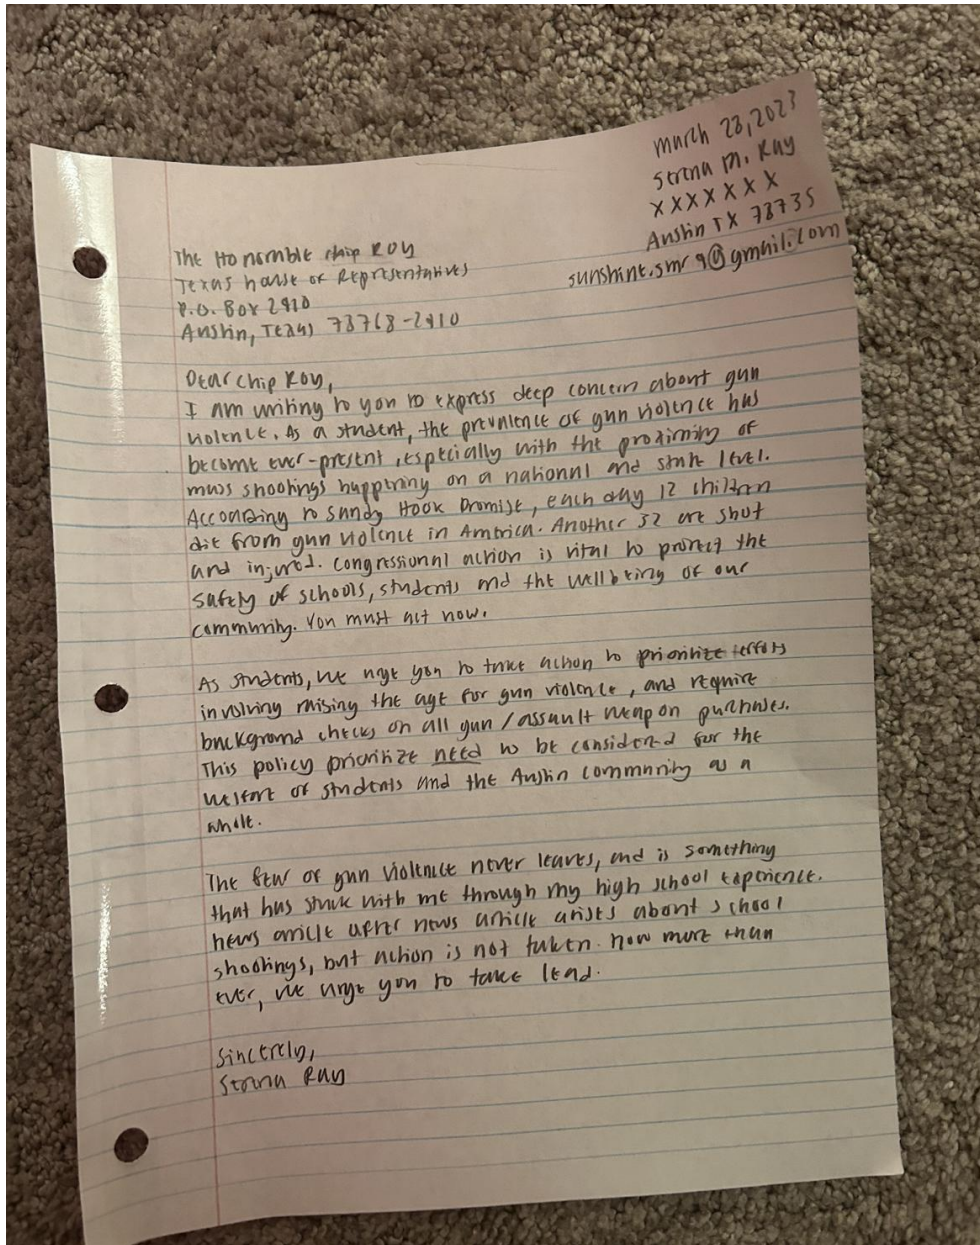 March 23, 2023
Serena M. Ray
XXXXXXX
Austin TX 78735
sunshine.smr9@gmail.com
The Honorable Chip Roy
Texas house of Representatives
P.O. Box 2910
Austin, Texas 78768-2910
Dear Chip Roy,
I am writing to you to express deep concern about gun
violence. As a student, the prevalence of gun violence has
become ever-present, especially with the proximity of
mass shootings happening on a national and state level.
According to Sandy Hook Promise, each day 12 children
die from gun violence in America. Another 32 are shot
and injured. Congressional action is vital to protect the
safety of schools, students and the wellbeing of our
community. You must act now.
As students, we urge you to take action to prioritize efforts
involving raising the age for gun violence, and require
background checks on all gun/assault weapon purchases.
This policy prioritize need to be considered for the
welfare of students and the Austin community as a
whole.
The fear of gun violence never leaves, and is something
that has stuck with me through my high school experience.
news article after news article arises about school
shootings, but action is not taken. now more than
ever, we urge you to take lead.
Sincerely,
Serena Ray